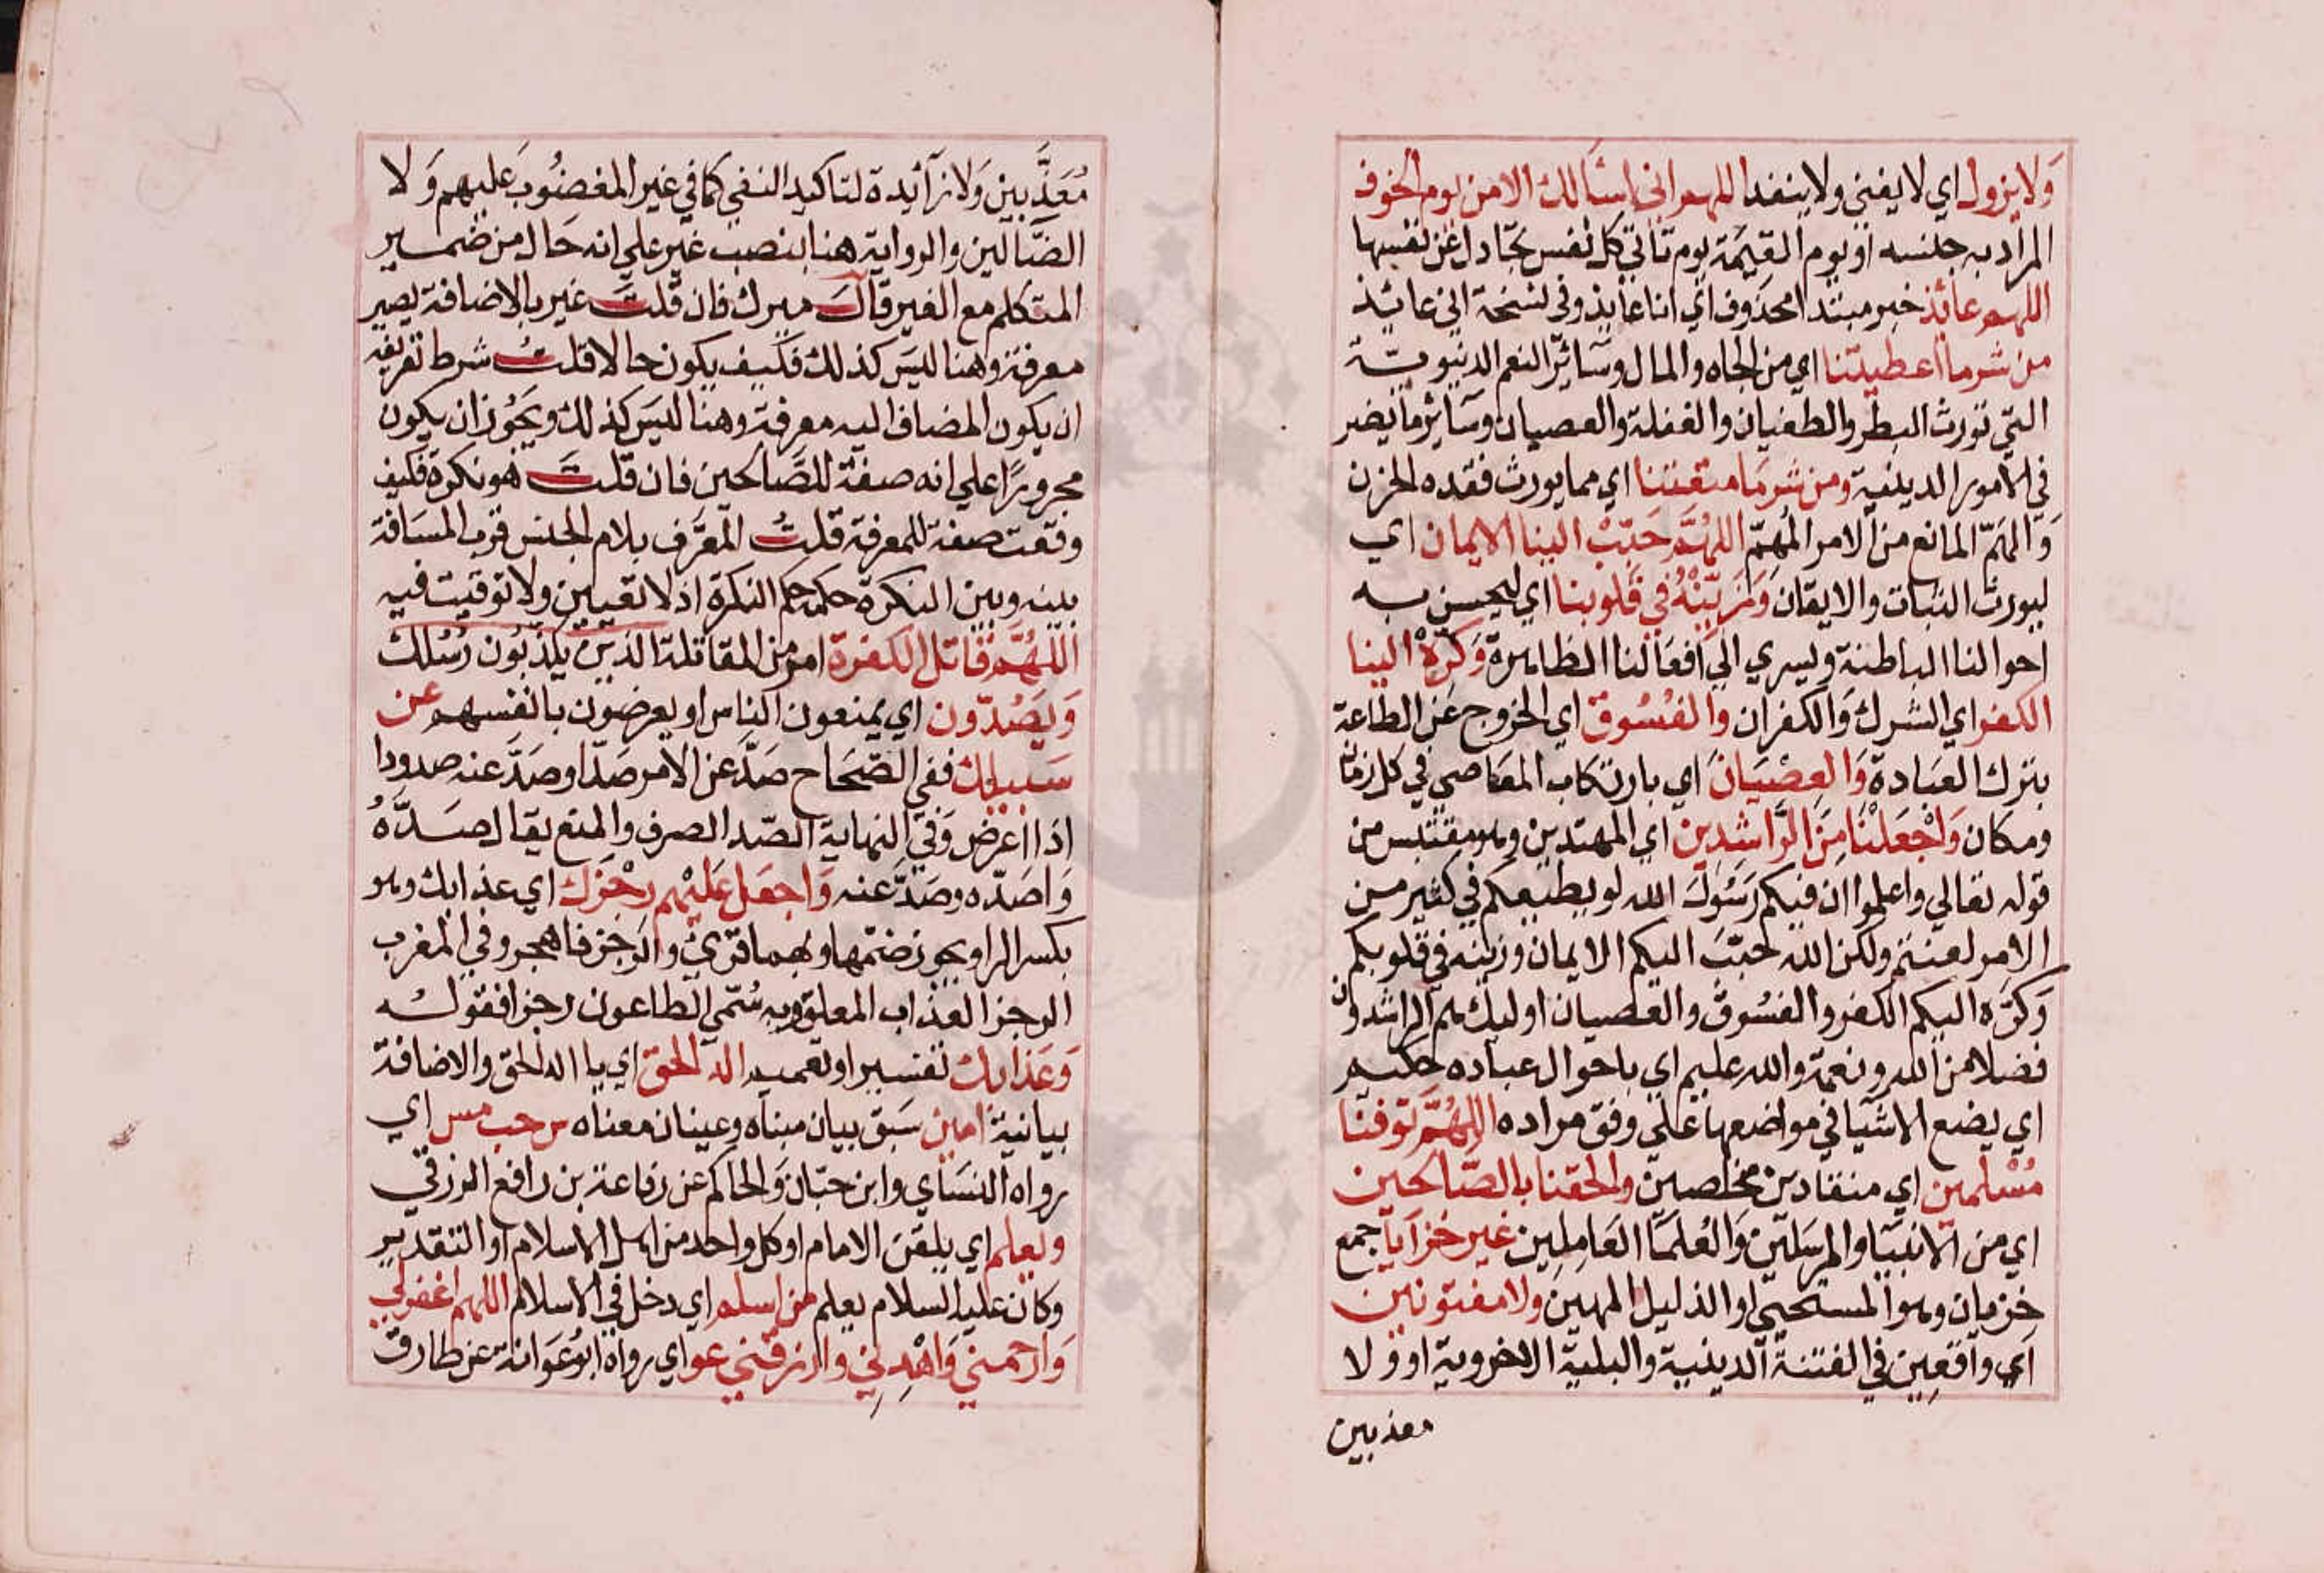 ولا يزول اي لا يفني ولا ينفد اللهم اني اسئالك الامن يوم الخوف
المراد به جنسه او يوم القيمة يوم تاتي كل نفس تجادل عن نفسها
اللهم عائذ خبر مبتدا محذوف اي انا عايذ وفي نسخة اني عائذ
من شر ما اعطيتنا اي من الجاه والمال وسائر النعم الدنيوية
التي تورث البطر والطغيان والغفلة والعصيان وسائر ما يضر
في الامور الدينية ومن شر ما منعتنا اي مما يورث فقده الحزن
والهم المانع من الامر المهم اللهم حبب الينا الايمان اي
ليورث الثبات والايقان وزينه في قلوبنا اي ليحسن به
احوالنا الباطنة ويسري الي افعالنا الظاهرة وكره الينا
الكفر اي الشرك والكفران والفسوق اي الخروج عن الطاعة
بترك العبادة والعصيان اي بارتكاب المعاصي في كل زمان
ومكان واجعلنا من الراشدين اي المهتدين وهو مقتبس من
قوله تعالي واعلموا ان فيكم رسول الله لو يطيعكم في كثير من
الامر لعنتم ولكن الله حبب اليكم الايمان وزينه في قلوبكم
وكره اليكم الكفر والفسوق والعصيان اوليك هم الراشدون
فضلا من الله ونعمة والله عليم اي باحوال عباده حكيم
اي يضع الاشيا في مواضعها علي وفق مراده اللهم توفنا
مسلمين اي منقادين مخلصين والحقنا بالصالحين
اي من الانبيا والمرسلين والعلما العاملين غير خزايا جمع
خزيان وهو المستحيي او الذليل المهين ولا مفتونين
اي واقعين في الفتنة الدينية والبلية الاخروية او ولا
معذبين
مُعَذَّبين ولا زائدة لتاكيد النفي كما في غير المغضوب عليهم ولا
الضالين والرواية هنا بنصب غير علي انه حال من ضمير
المتكلم مع الغير قال ميرك فان قلت غير بالاضافة يصير
معرفة وهنا ليس كذلك فكيف يكون حالا قلت شرط تعريفه
ان يكون المضاف اليه معرفة وهنا ليس كذلك ويجوز ان يكون
مجرورا علي انه صفة للصالحين فان قلت هو نكرة فكيف
وقعت صفة للمعرفة قلت المعرف بلام الجنس قرب المسافة
بينه وبين النكرة حكمه حكم النكرة اذ لا تعيين ولا توقيت فيه
اللهم قاتل الكفرة امر من المقاتلة الذين يكذبون رسلك
ويصدون اي يمنعون الناس او يعرضون بانفسهم عن
سبيلك ففي الصحاح صد عن الامر صدا وصد عنه صدودا
اذا اعرض وفي النهاية الصد الصرف والمنع يقال صده
واصده وصد عنه واجعل عليهم رجزك اي عذابك وهو
بكسر الرا ويجوز ضمها وبهما قرئ والرجز فاهجر وفي المغرب
الرجز العذاب المعلق وبه سمي الطاعون رجزا فقوله
وعذابك تفسير او تعميد اله الحق اي يا اله الحق والاضافة
بيانية امين سبق بيان مبناه وعينان معناه س حب مس اي
رواه النساي وابن حبان والحاكم عن رفاعة بن رافع الزرقي
ويعلم اي يلقن الامام او كل واحد من اهل الاسلام او التقدير
وكان عليه السلام يعلم من اسلم اي دخل في الاسلام اللهم اغفر لي
وارحمني واهدني وارزقني عو اي رواه ابو عوانة عن طارق